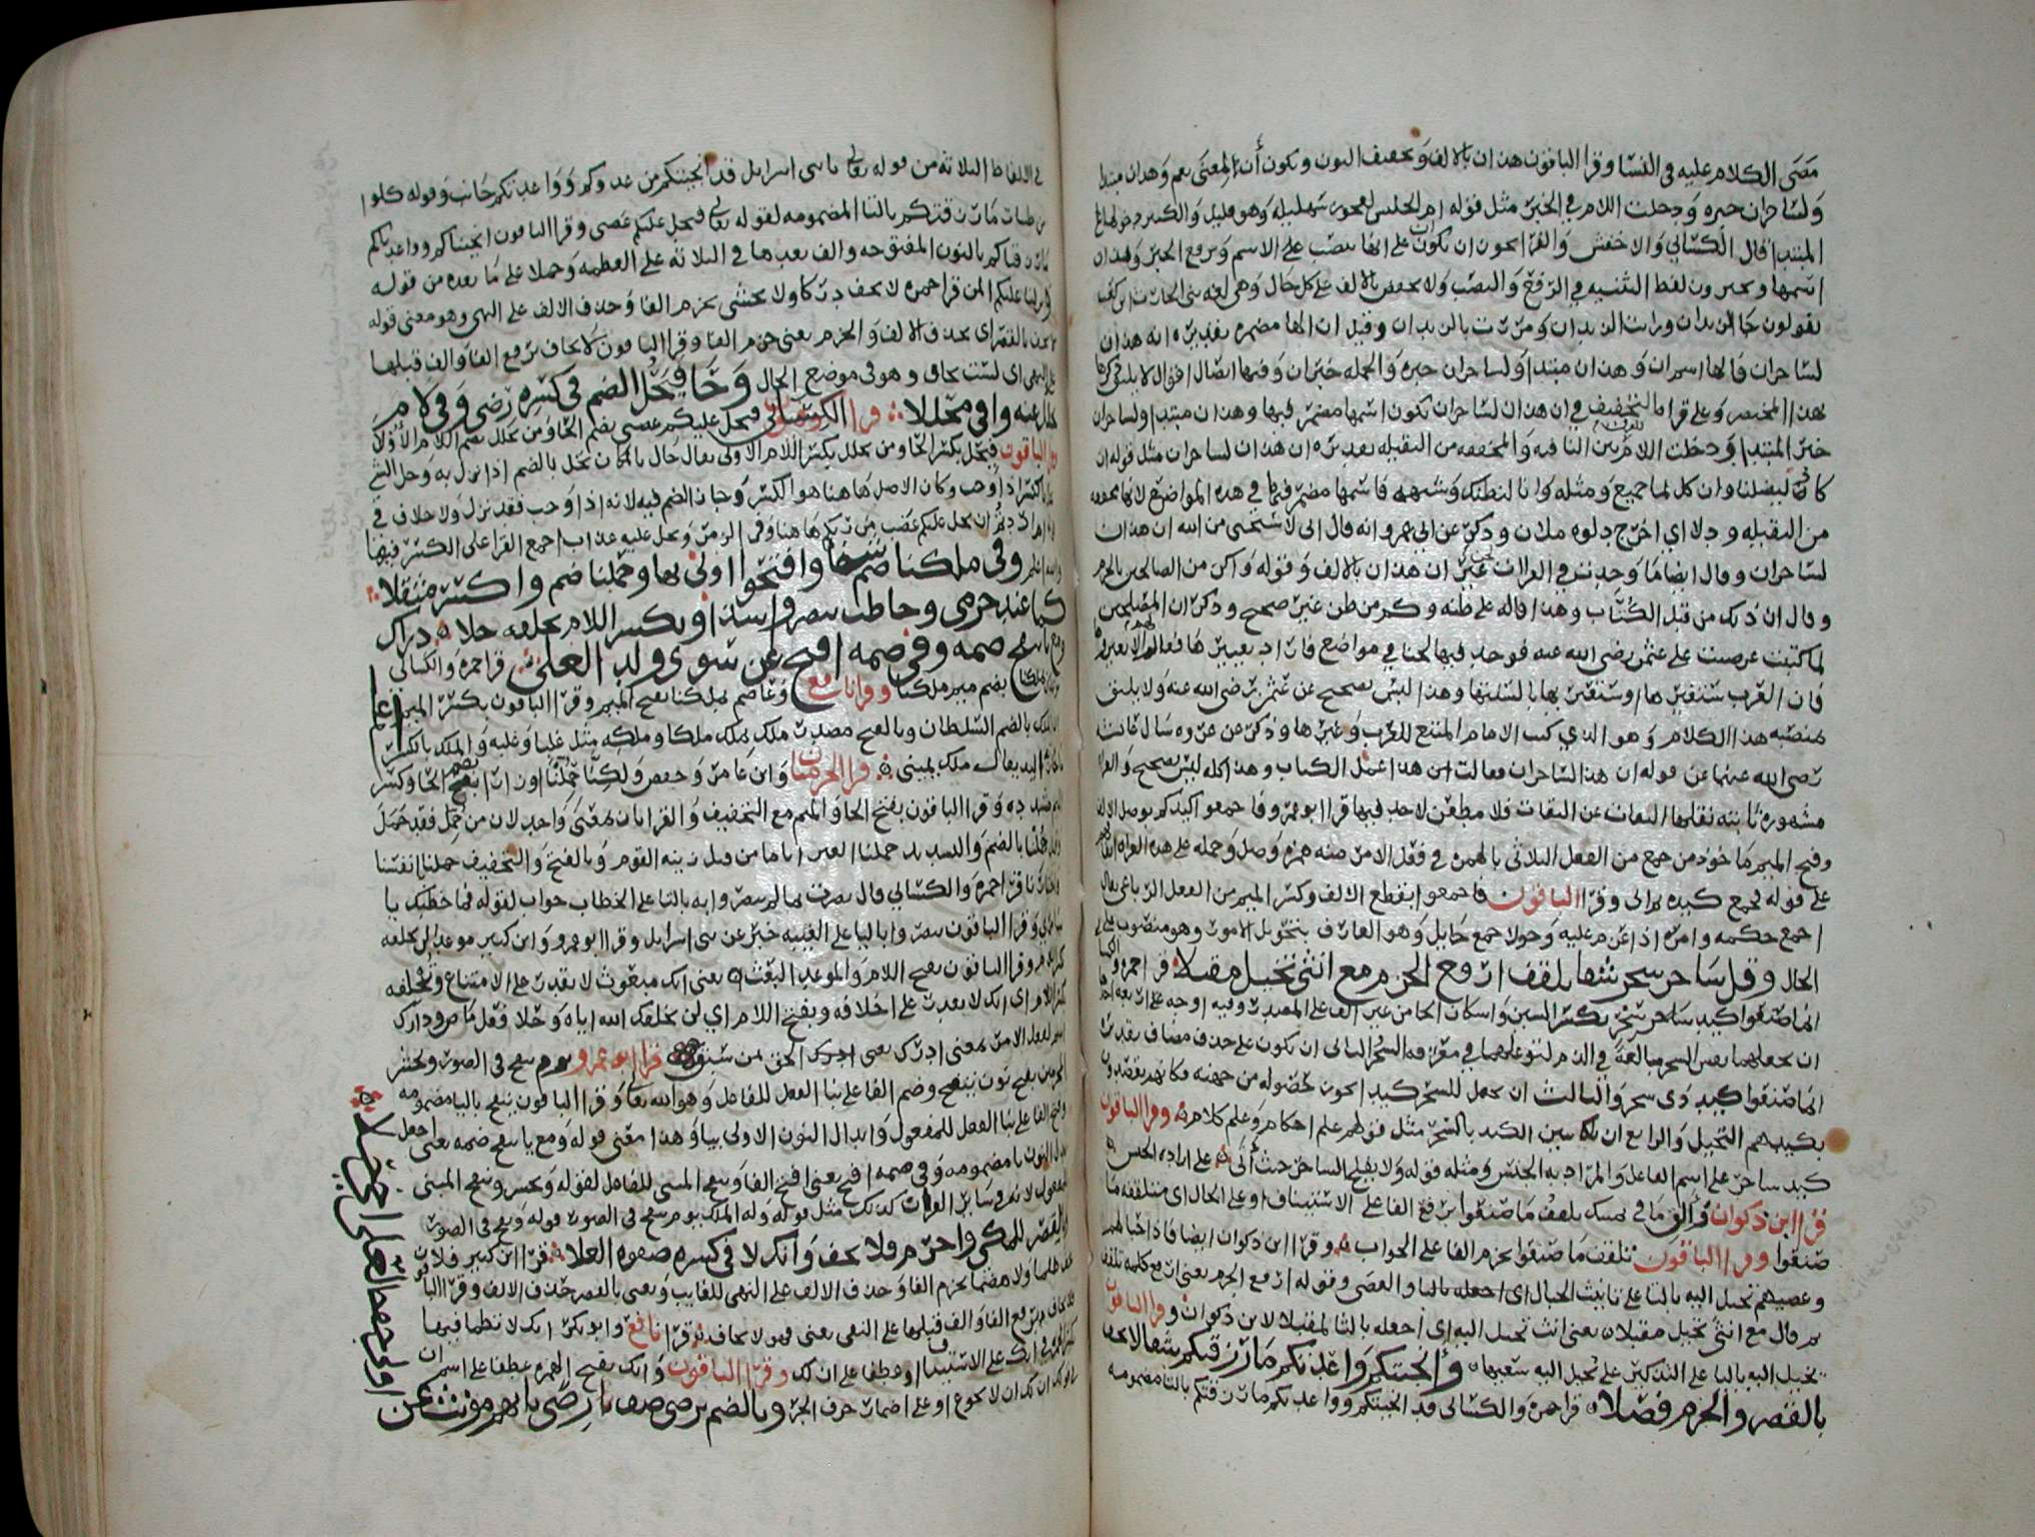 مضى الكلام عليه في النسا وقرا الباقون هذان بالالف وتخفيف النون وتكون أن بمعنى نعم وهذان مبتدا
ولساحران خبره ودخلت اللام في الخبر مثل قوله ام الحليس لعجوز شهربه وهو قليل والكثير دخولها في
المبتدا قال الكسائي والاخفش والفرا يجوز ان تكون على انها تنصب على الاسم وترفع الخبر وهذان
اسمها ويجرون لفظ التثنيه في الرفع والنصب ولا يخفض بالالف على كل حال وهي لغه بني الحارث ابن كعب
يقولون جا الزيدان ورايت الزيدان ومررت بالزيدان وقيل ان الها مضمره تقديره انه هذان
لساحران فالها اسم ان وهذان مبتدا ولساحران خبره والجمله خبر ان وفيها ايضا اقوال لا يليق ذكرها
بهذا المختصر وعلى قراة التخفيف في ان هذان لساحران تكون اسمها مضمر فيها وهذان مبتدا ولساحران
خبر المبتدا ودخلت اللام بين النافيه والمخففه من الثقيله تقديره ان هذان لساحران مثل قوله ان
كاد ليضلنا وان كل لما جميع ومثله وان نظنك وشبهه فاسمها مضمر فيها في هذه المواضع لانها مخففه
من الثقيله ودلا اي اخرج دلوه ملان وذكر عن ابي عمرو انه قال اني لاستحيى من الله ان هذان
لساحران وقال ايضا ما وجدت في القران غير ان هذان بالالف وقوله واكن من الصالحين بالجزم
وقال ان ذلك من قبل الكتاب وهذا قاله على ظنه وكم من ظن غير صحيح وذكر ان المصاحف
لما كتبت عرضت على عثمن رضى الله عنه فوجد فيها لحنا في مواضع فاراد تغييرها فقال لا تغيروها
فان العرب ستغيرها وستقيمها بالسنتها وهذا ليس بصحيح عن عثمن رضى الله عنه ولا يليق
بمنصبه هذا الكلام وهو الذي كتب الامام المتبع للعرب وغيرها وذكر عن عروه سال عائشه
رضى الله عنها عن قوله ان هذا لساحران فقالت ابن هذا عمل الكتاب وهذا كله ليس بصحيح والقراة
مشهوره ثابته نقلها الثقات عن الثقات فلا مطعن لاحد فيها قرا ابو عمرو فاجمعوا كيدكم بوصل الالف
وفتح الميم ماخوذ من جمع من الفعل الثلاثي بالهمزه في فعل الامر منه همزه وصل وحمله على هذه القراه
على قوله فجمع كيده ثم اتى وقرا الباقون فاجمعوا بقطع الالف وكسر الميم من الفعل الرباعي يقال
اجمع حكمه وامره اذا عزم عليه وحولا جمع حايل وهو العارف بتحويل الامور وهو منصوب على
الحال وقل ساحر سحر شفا وتلقف ارفع الجزم مع انثى تخيل مقبلا قرا حمزه والكسائي
انما صنعوا كيد ساحر سحر بكسر السين واسكان الحا من غير الف على المصدر وفيه اوجه على اربعه
ان يجعلهما نفس السحر مبالغة في الذم لتوغلهما في معرفه السحر الثاني ان تكون على حذف مضاف تقديره
انما صنعوا كيد ذى سحر والثالث ان يجعل للسحر كيد ايجوز لحصوله من جهته
بكيدهم التخيل والرابع ان يبين الكيد بالسحر مثل قولهم علم احكام وعلم كلام وقرا الباقون
كيد ساحر على اسم الفاعل والمراد به الجنس ومثله قوله ولا يفلح الساحر حيث أتى على اراده الجنس
قرا ابن ذكوان والق ما في يمينك تلقف ما صنعوا برفع الفا على الاستيناف او على الحال اي متلقفه ما
صنعوا وقرا الباقون تلقف ما صنعوا بجزم الفا على الجواب وقرا ابن ذكوان ايضا فاذا حبالهم
وعصيهم تخيل اليه بالتا على تانيث الحبال اى اجعله بالتا والعصى وقوله ارفع الجزم يعني ارفع كلمه تلقف
ثم قال مع انثى تخيل مقبلا يعني انث تخيل اليه اى اجعله بالتا لمقبلا لابن ذكوان وقرا الباقون
يخيل اليه باليا على التذكير على تخيل اليه سعيها وانجيتكم واعدتكم ما رزقتكم شفا لا تخف
بالقصر والجزم فصلا قرا حمزه والكسائى قد انجيتكم وواعدتكم ما رزقتكم بالتا مضمومه
في الالفاظ الثلاثه من قوله تعالى يا بنى اسرايل قد انجيتكم من عدوكم وواعدتكم جانب وقوله كلوا
من طيبات ما رزقتكم بالتا المضمومه لقوله تعالى فيحل عليكم غضبى وقرا الباقون انجيناكم وواعدناكم
ما رزقناكم بالنون المفتوحه والف بعدها في الثلاثه على العظمه وحملا على ما بعده من قوله
ونزلنا عليكم المن قرا حمزه لا تخف دركا ولا تخشى بجزم الفا وحذف الالف على النهى وهو معنى قوله
لا تخف بالقصر اى بحذف الالف والجزم يعنى جزم الفا وقرا الباقون لا تخاف برفع الفا والف قبلها
على النهى اى لست تخاف وهو فى موضع الحال وحا فيحل الضم في كسره رضى وفي لام
يحلل عنه وافى محللا قرا الكسائى فيحل عليكم غضبى بضم الحا ومن يحلل بضم اللام الاولى
وقرا الباقون فيحل بكسر الحا ومن يحلل بكسر اللام الاولى يقال حل بالمكان يحل بالضم اذا نزل به وحل الشى
يحل بالكسر اذا وجب وكان الاصل هاهنا هو الكسر وجاز الضم فيه لانه اذا وجب فقد نزل ولا خلاف في
ام اردتم ان يحل عليكم غضب من ربكم هاهنا وفى الزمر ويحل عليه عذاب اجمع القرا على الكسر فيها
والله اعلم وفى ملكنا ضم شفا وافتحوا اولى نهى وحملنا ضم واكسر مثقلا
كما عند حرمى وخاطب تبصروا شذا وبكسر اللام تخلفه حلا دراك
ومع يا ننفخ ضمه وفى ضمه افتح عن سوى ولد العلى قرا حمزه والكسائى
بملكنا بضم ميم ملكنا وقرا نافع وعاصم بملكنا بفتح الميم وقرا الباقون بكسر الميم
الملك بالضم السلطان وبالفتح مصدر ملك يملك ملكا وملكه مثل غلبا وغلبه والملك بالكسر
ما حازته اليد يقال ملك يمينى قرا الحرميان وابن عامر وحفص ولكنا حملنا اوزارا بضم الحا وكسر
الميم مشدده وقرا الباقون بفتح الحا والميم مع التخفيف والقراتان بمعنى واحد لان من حمل فقد حمل
وقد حملنا بالضم والتشديد حملنا الغير اياها من قبل زينه القوم وبالفتح والتخفيف حملنا انفسنا
قرا حمزه والكسائي قال بصرت بما لم تبصروا به بالتا على الخطاب جواب لقوله فما خطبك يا
سامري وقرا الباقون يبصروا باليا على الغيبه خبر عن بنى اسرايل وقرا ابو عمرو وابن كثير موعدا لن تخلفه
بكسر اللام وقرا الباقون بفتح اللام والموعد البعث يعنى انك مبعوث لا تقدر على الامتناع وتخلفه
بكسر اللام اى انك لا تقدر على اخلافه وبفتح اللام اي لن يخلفك الله اياه وحلا فعل ماض ودراك
اسم لفعل الامر بمعنى ادرك يعنى ادرك الحق بمن سبق قرا ابو عمرو يوم ننفخ في الصور ونحشر
المجرمين بفتح نون ننفخ وضم الفا على بنا الفعل للفاعل وهو الله تعالى وقرا الباقون ينفخ باليا مضمومه
وفتح الفا على بنا الفعل للمفعول وابدال النون الاولى بيا وهذا معنى قوله ومع يا ننفخ ضمه يعنى اجعل
بدل النون يا مضمومه وفي ضمه افتح يعنى افتح الفا وننفخ المبنى للفاعل لقوله ونحشر وينفخ المبنى
للمفعول لانه في ساير القران كذلك مثل قوله وله الملك يوم ينفخ فى الصور قوله ونفخ فى الصور
وبالقصر للمكى واجزم فلا يخف وانك لا فى كسره صفوه العلا قرا ابن كثير فلا يخف
ظلما ولا هضما بجزم الفا وحذف الالف على النهى للغايب ويعنى بالقصر حذف الالف وقرا الباقون
فلا يخاف برفع الفا والف قبلها على النفى يعنى فهو لا يخاف قرا نافع وابو بكر انك لا تظما فيها
بكسر الهمزه فى انك على الاستيناف او عطفا على ان لك وقرا الباقون وانك بفتح الهمزه عطفا على اسم ان
تقديره ان لك ان لا تجوع او على اضمار حرف الجر وبالضم ترضى صف رضى ياتهم مونث عن
اولى حفظ لعلى اخى حلا